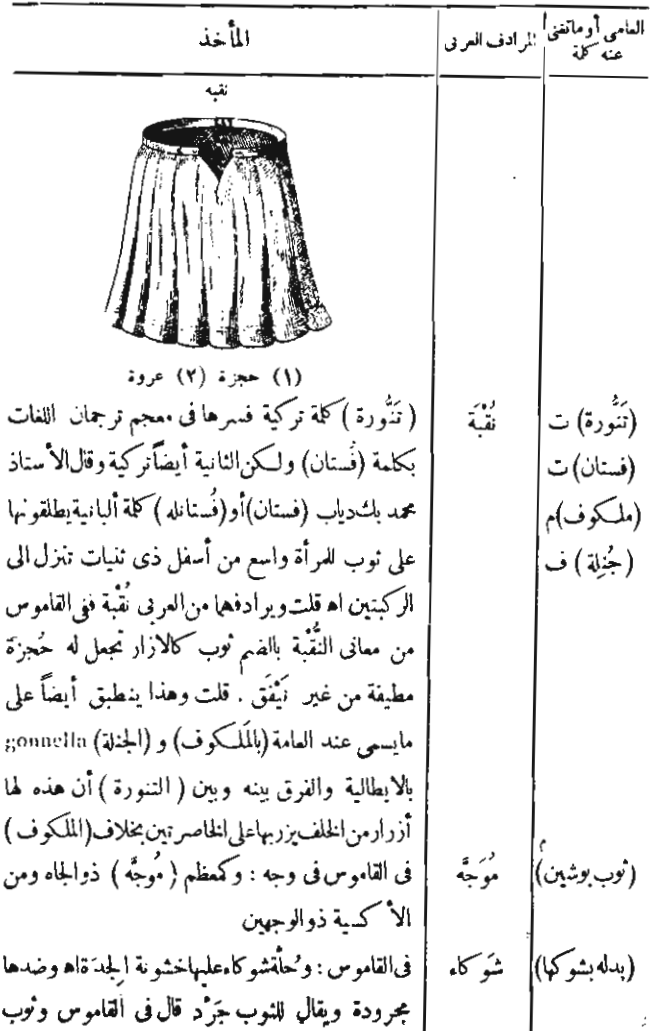 العامى أو ماتفنى عنه كلمة | المرادف العربى | المأخذ
نقبه
(١) حجزة (٢) عروة
(تَنُّورة) ت | نُقْبَة | (تَنُّورة) كلمة تركية فسرها فى معجم ترجمان اللغات
(فستان) ت | بكلمة (فُستان) ولكن الثانية أيضاً تركية وقال الأستاذ
(ملكوف) م | محمد بك دياب (فستان) أو (فُستانله) كلمة ألبانية يطلقونها
(جُنِلة) ف | على ثوب للمرأة واسع من أسفل ذى ثنيات تنزل الى
الركبتين اه قلت ويرادفهما من العربى نُقْبة ففى القاموس
من معانى النُّقْبة بالضم ثوب كالازار تجعل له حُجزَة
مطيفة من غير نَيْفَق . قلت وهذا ينطبق أيضاً على
مايسمى عند العامة (بالمَلَكوف) و (الجنلة) gonnella
بالايطالية والفرق بينه وبين (التنورة) أن هذه لها
أزرار من الخلف يزر بها على الخاصرتين بخلاف (الملكوف)
(ثوب بوشين) م | مُوَجَّه | فى القاموس فى وجه : وكمعظم (مُوجَّه) ذوالجاه ومن
الأكسية ذوالوجهين
(بدله بشوكها) | شَوكاء | فى القاموس : وحُلّة شوكاء عليها خشونة الجدَة اه وضدها
مجرودة ويقال للثوب جَرْد قال فى القاموس وثوب